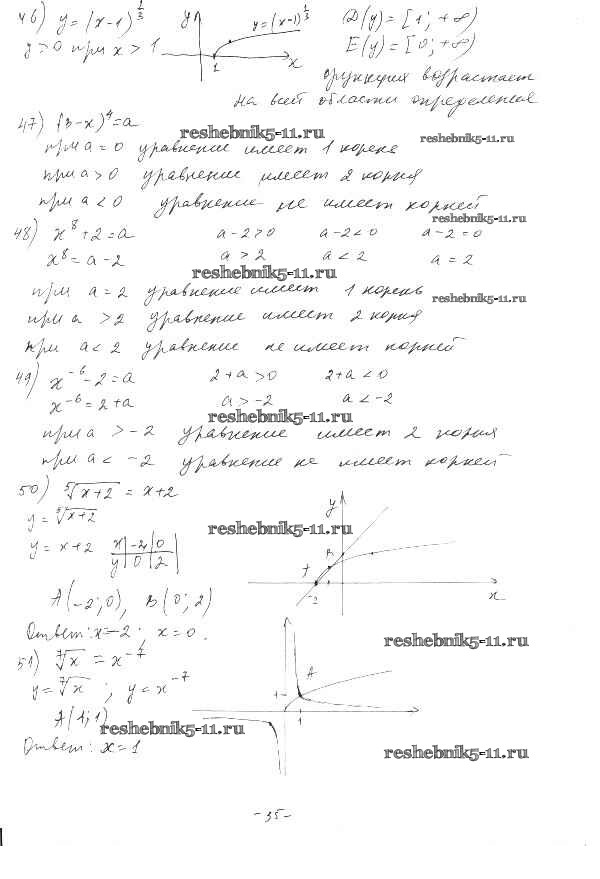 46) y = (x-1)^{1/3} y y=(x-1)^{1/3} D(y) = [1; +∞)
y > 0 при x > 1 1 x E(y) = [0; +∞)
функция возрастает
на всей области определения
47) (3-x)^4 = a reshebnik5-11.ru reshebnik5-11.ru
при a = 0 уравнение имеет 1 корень
при a > 0 уравнение имеет 2 корня
при a < 0 уравнение не имеет корней
reshebnik5-11.ru
48) x^8 + 2 = a a-2>0 a-2<0 a-2=0
x^8 = a - 2 a > 2 a < 2 a = 2
reshebnik5-11.ru
при a = 2 уравнение имеет 1 корень reshebnik5-11.ru
при a > 2 уравнение имеет 2 корня
при a < 2 уравнение не имеет корней
49) x^{-6} - 2 = a 2+a>0 2+a<0
x^{-6} = 2+a a > -2 a < -2
reshebnik5-11.ru
при a > -2 уравнение имеет 2 корня
при a < -2 уравнение не имеет корней
50) ⁵√(x+2) = x+2
y = ⁵√(x+2) reshebnik5-11.ru y
y = x+2 x | -2 | 0 B
y | 0 | 2 A
A(-2; 0), B(0; 2) -2 x
Ответ: x=-2; x=0. reshebnik5-11.ru
51) ⁷√x = x^{-7} A
y = ⁷√x ; y = x^{-7} 1
A(1; 1) reshebnik5-11.ru 1
Ответ: x = 1 reshebnik5-11.ru
-35-